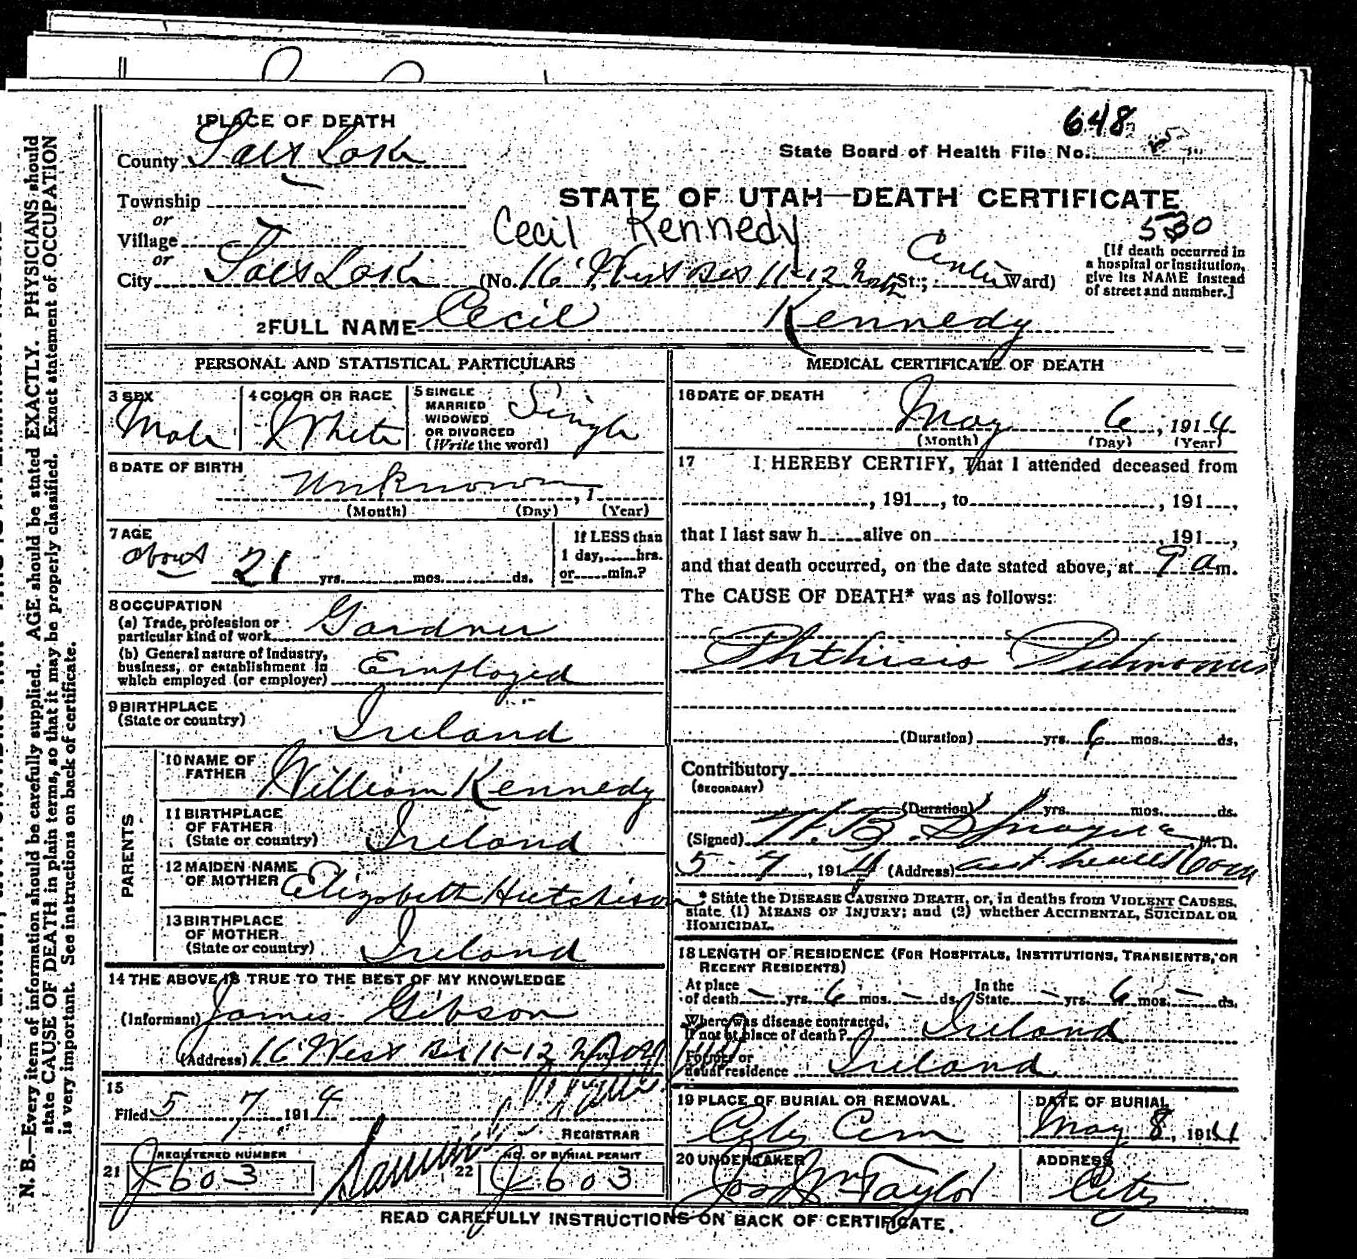 648
1 PLACE OF DEATH
County Salt Lake
State Board of Health File No.
STATE OF UTAH—DEATH CERTIFICATE
Township
or
Village
or
Cecil Kennedy
530
[If death occurred in
a hospital or institution,
give its NAME instead
of street and number.]
City Salt Lake (No. 16 West Bet 11-12 North St.; Center Ward)
2 FULL NAME Cecil Kennedy
PERSONAL AND STATISTICAL PARTICULARS
3 SEX
Male
4 COLOR OR RACE
White
5 SINGLE
MARRIED
WIDOWED
OR DIVORCED
(Write the word)
Single
6 DATE OF BIRTH
Unknown, 1
(Month) (Day) (Year)
7 AGE
about 21 yrs. mos. ds.
If LESS than
1 day, hrs.
or min.?
8 OCCUPATION
(a) Trade, profession or
particular kind of work Gardner
(b) General nature of Industry,
business, or establishment in
which employed (or employer) Employed
9 BIRTHPLACE
(State or country) Ireland
PARENTS
10 NAME OF
FATHER William Kennedy
11 BIRTHPLACE
OF FATHER
(State or country) Ireland
12 MAIDEN NAME
OF MOTHER Elizabeth Hutchison
13 BIRTHPLACE
OF MOTHER
(State or country) Ireland
14 THE ABOVE IS TRUE TO THE BEST OF MY KNOWLEDGE
(Informant) James Gibson
(Address) 16 West Bet 11-12 North
15
Filed 5 7 1914
REGISTRAR
21 REGISTERED NUMBER
J 603
22 NO. OF BURIAL PERMIT
J 603
MEDICAL CERTIFICATE OF DEATH
16 DATE OF DEATH
May 6, 1914
(Month) (Day) (Year)
17 I HEREBY CERTIFY, That I attended deceased from
, 191 , to , 191 ,
that I last saw h alive on , 191 ,
and that death occurred, on the date stated above, at 9 a m.
The CAUSE OF DEATH* was as follows:
Phthisis Pulmonus
(Duration) yrs. 6 mos. ds.
Contributory
(SECONDARY)
(Duration) yrs. mos. ds.
(Signed) H. B. Sprague M. D.
5-7, 1914 (Address) asst health Com
* State the DISEASE CAUSING DEATH, or, in deaths from VIOLENT CAUSES,
state (1) MEANS OF INJURY; and (2) whether ACCIDENTAL, SUICIDAL OR
HOMICIDAL.
18 LENGTH OF RESIDENCE (FOR HOSPITALS, INSTITUTIONS, TRANSIENTS, OR
RECENT RESIDENTS)
At place
of death — yrs. 6 mos. — ds.
In the
State — yrs. 6 mos. — ds.
Where was disease contracted,
if not at place of death? Ireland
Former or
usual residence Ireland
19 PLACE OF BURIAL OR REMOVAL
City Cem
DATE OF BURIAL
May 8, 1914
20 UNDERTAKER
Jos Wm Taylor
ADDRESS
City
READ CAREFULLY INSTRUCTIONS ON BACK OF CERTIFICATE.
N. B.—Every item of information should be carefully supplied. AGE should be stated EXACTLY. PHYSICIANS should
state CAUSE OF DEATH in plain terms, so that it may be properly classified. Exact statement of OCCUPATION
is very important. See instructions on back of certificate.